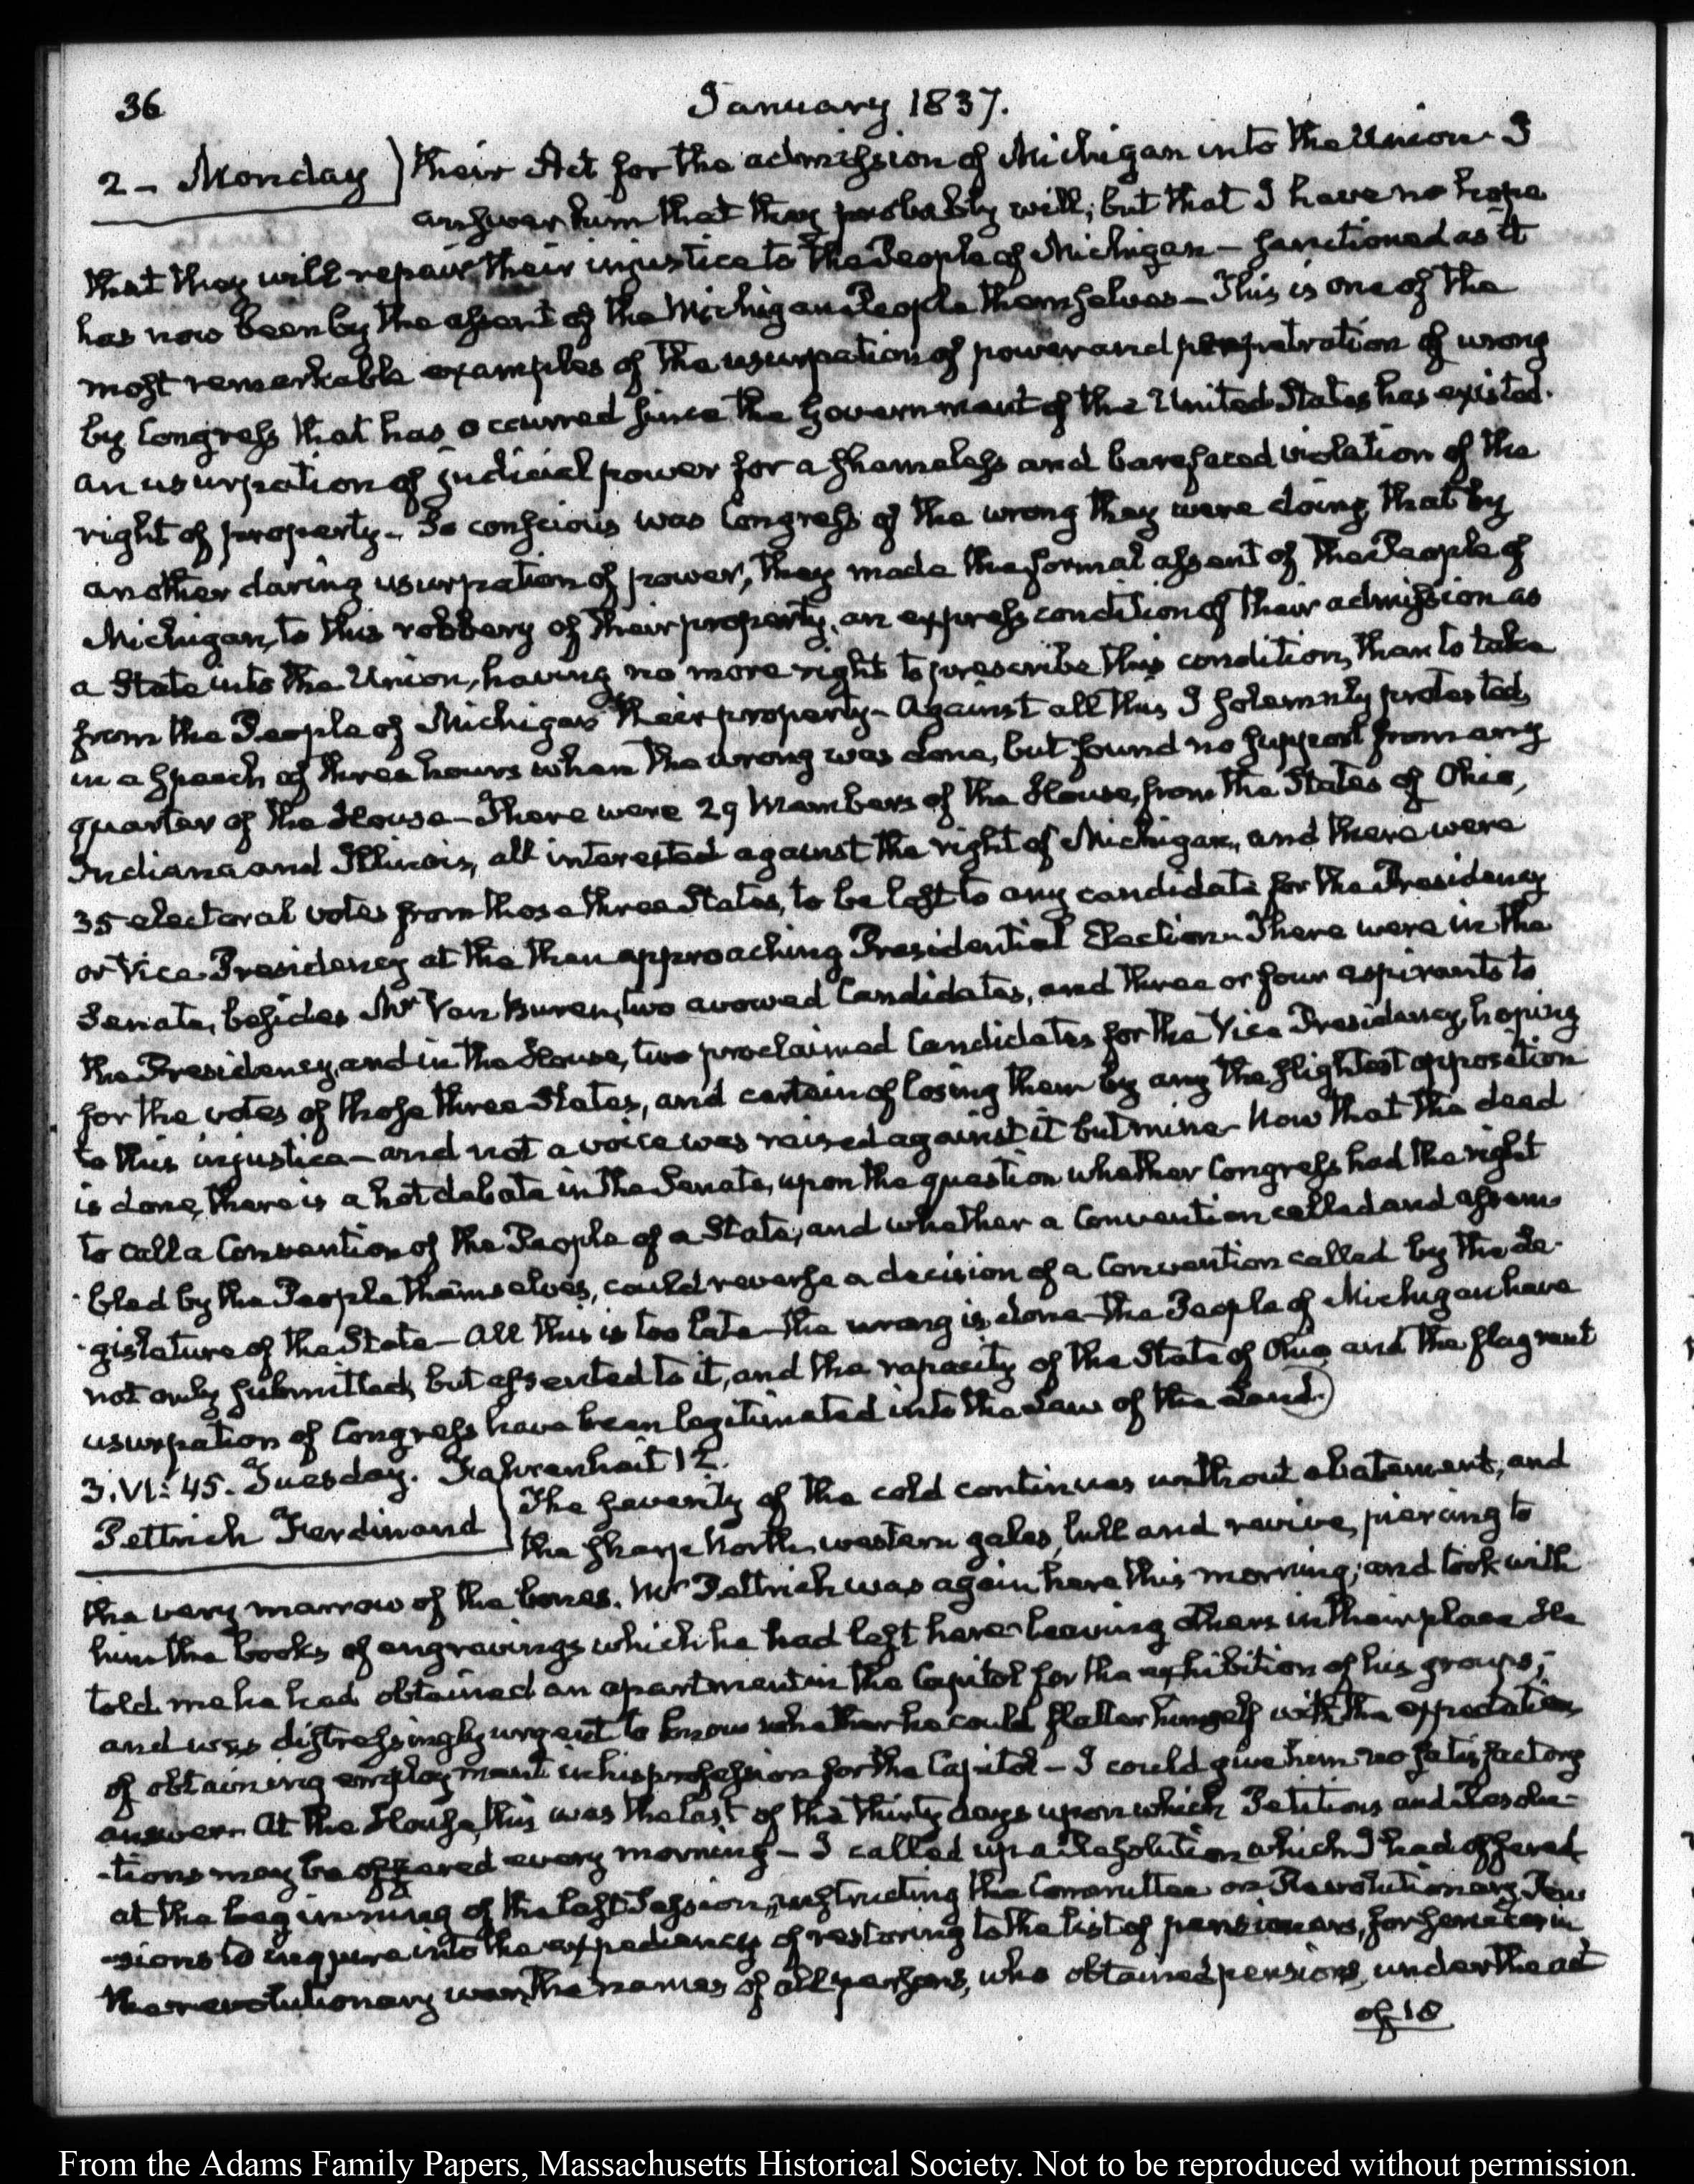 36
January 1837.
2 - Monday
their Act for the admission of Michigan into the Union - I
answer him that they probably will; but that I have no hope
that they will repair their injustice to the People of Michigan - sanctioned as it
has now been by the assent of the Michigan People themselves - This is one of the
most remarkable examples of the usurpation of power and perpetration of wrong
by Congress that has occurred since the Government of the United States has existed.
an usurpation of judicial power for a shameless and barefaced violation of the
right of property - So conscious was Congress of the wrong they were doing, that by
another daring usurpation of power, they made the formal assent of the People of
Michigan, to this robbery of their property, an express condition of their admission as
a State into the Union, having no more right to prescribe this condition, than to take
from the People of Michigan their property - Against all this I solemnly protested,
in a Speech of three hours when the wrong was done, but found no support from any
quarter of the House - There were 29 Members of the House, from the States of Ohio,
Indiana and Illinois, all interested against the right of Michigan, and there were
35 electoral votes from those three States, to be lost to any candidate for the Presidency
or Vice-Presidency at the then approaching Presidential Election - There were in the
Senate, besides Mr Van Buren, two avowed Candidates, and three or four aspirants to
the Presidency, and in the House, two proclaimed Candidates for the Vice Presidency, hoping
for the votes of those three States, and certain of losing them by any the slightest opposition
to this injustice - and not a voice was raised against it but mine - Now that the deed
is done, there is a hot debate in the Senate, upon the question whether Congress had the right
to call a Convention of the People of a State, and whether a Convention called and assem-
bled by the People themselves, could reverse a decision of a Convention called by the Le-
gislature of the State - All this is too late - the wrong is done - the People of Michigan have
not only submitted, but assented to it, and the rapacity of the State of Ohio and the flagrant
usurpation of Congress have been legitimated into the Law of the Land.
3. VI: 45. Tuesday. Fahrenheit 12.
Pettrich Ferdinand
The severity of the cold continues without abatement, and
the sharp North-western gales, lull and revive, piercing to
the very marrow of the bones. Mr Pettrich was again here this morning; and took with
him the books of engravings which he had left here - leaving others in their place He
told me he had obtained an apartment in the Capitol for the exhibition of his groups;
and was distressingly urgent to know whether he could flatter himself with the expectation
of obtaining employment in his profession for the Capitol - I could give him no satisfactory
answer. At the House, this was the last of the thirty days upon which Petitions and Resolu-
-tions may be offered every morning - I called up a Resolution which I had offered
at the beginning of the last Session, instructing the Committee on Revolutionary Pen
-sions to inquire into the expediency of restoring to the list of pensioners, for service in
the revolutionary war, the names of all persons, who obtained pensions, under the act
of 18
From the Adams Family Papers, Massachusetts Historical Society. Not to be reproduced without permission.